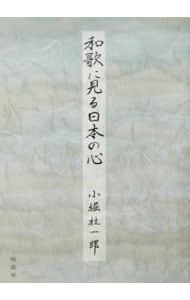 和歌に見る日本の心
小堀桂一郎
明成社